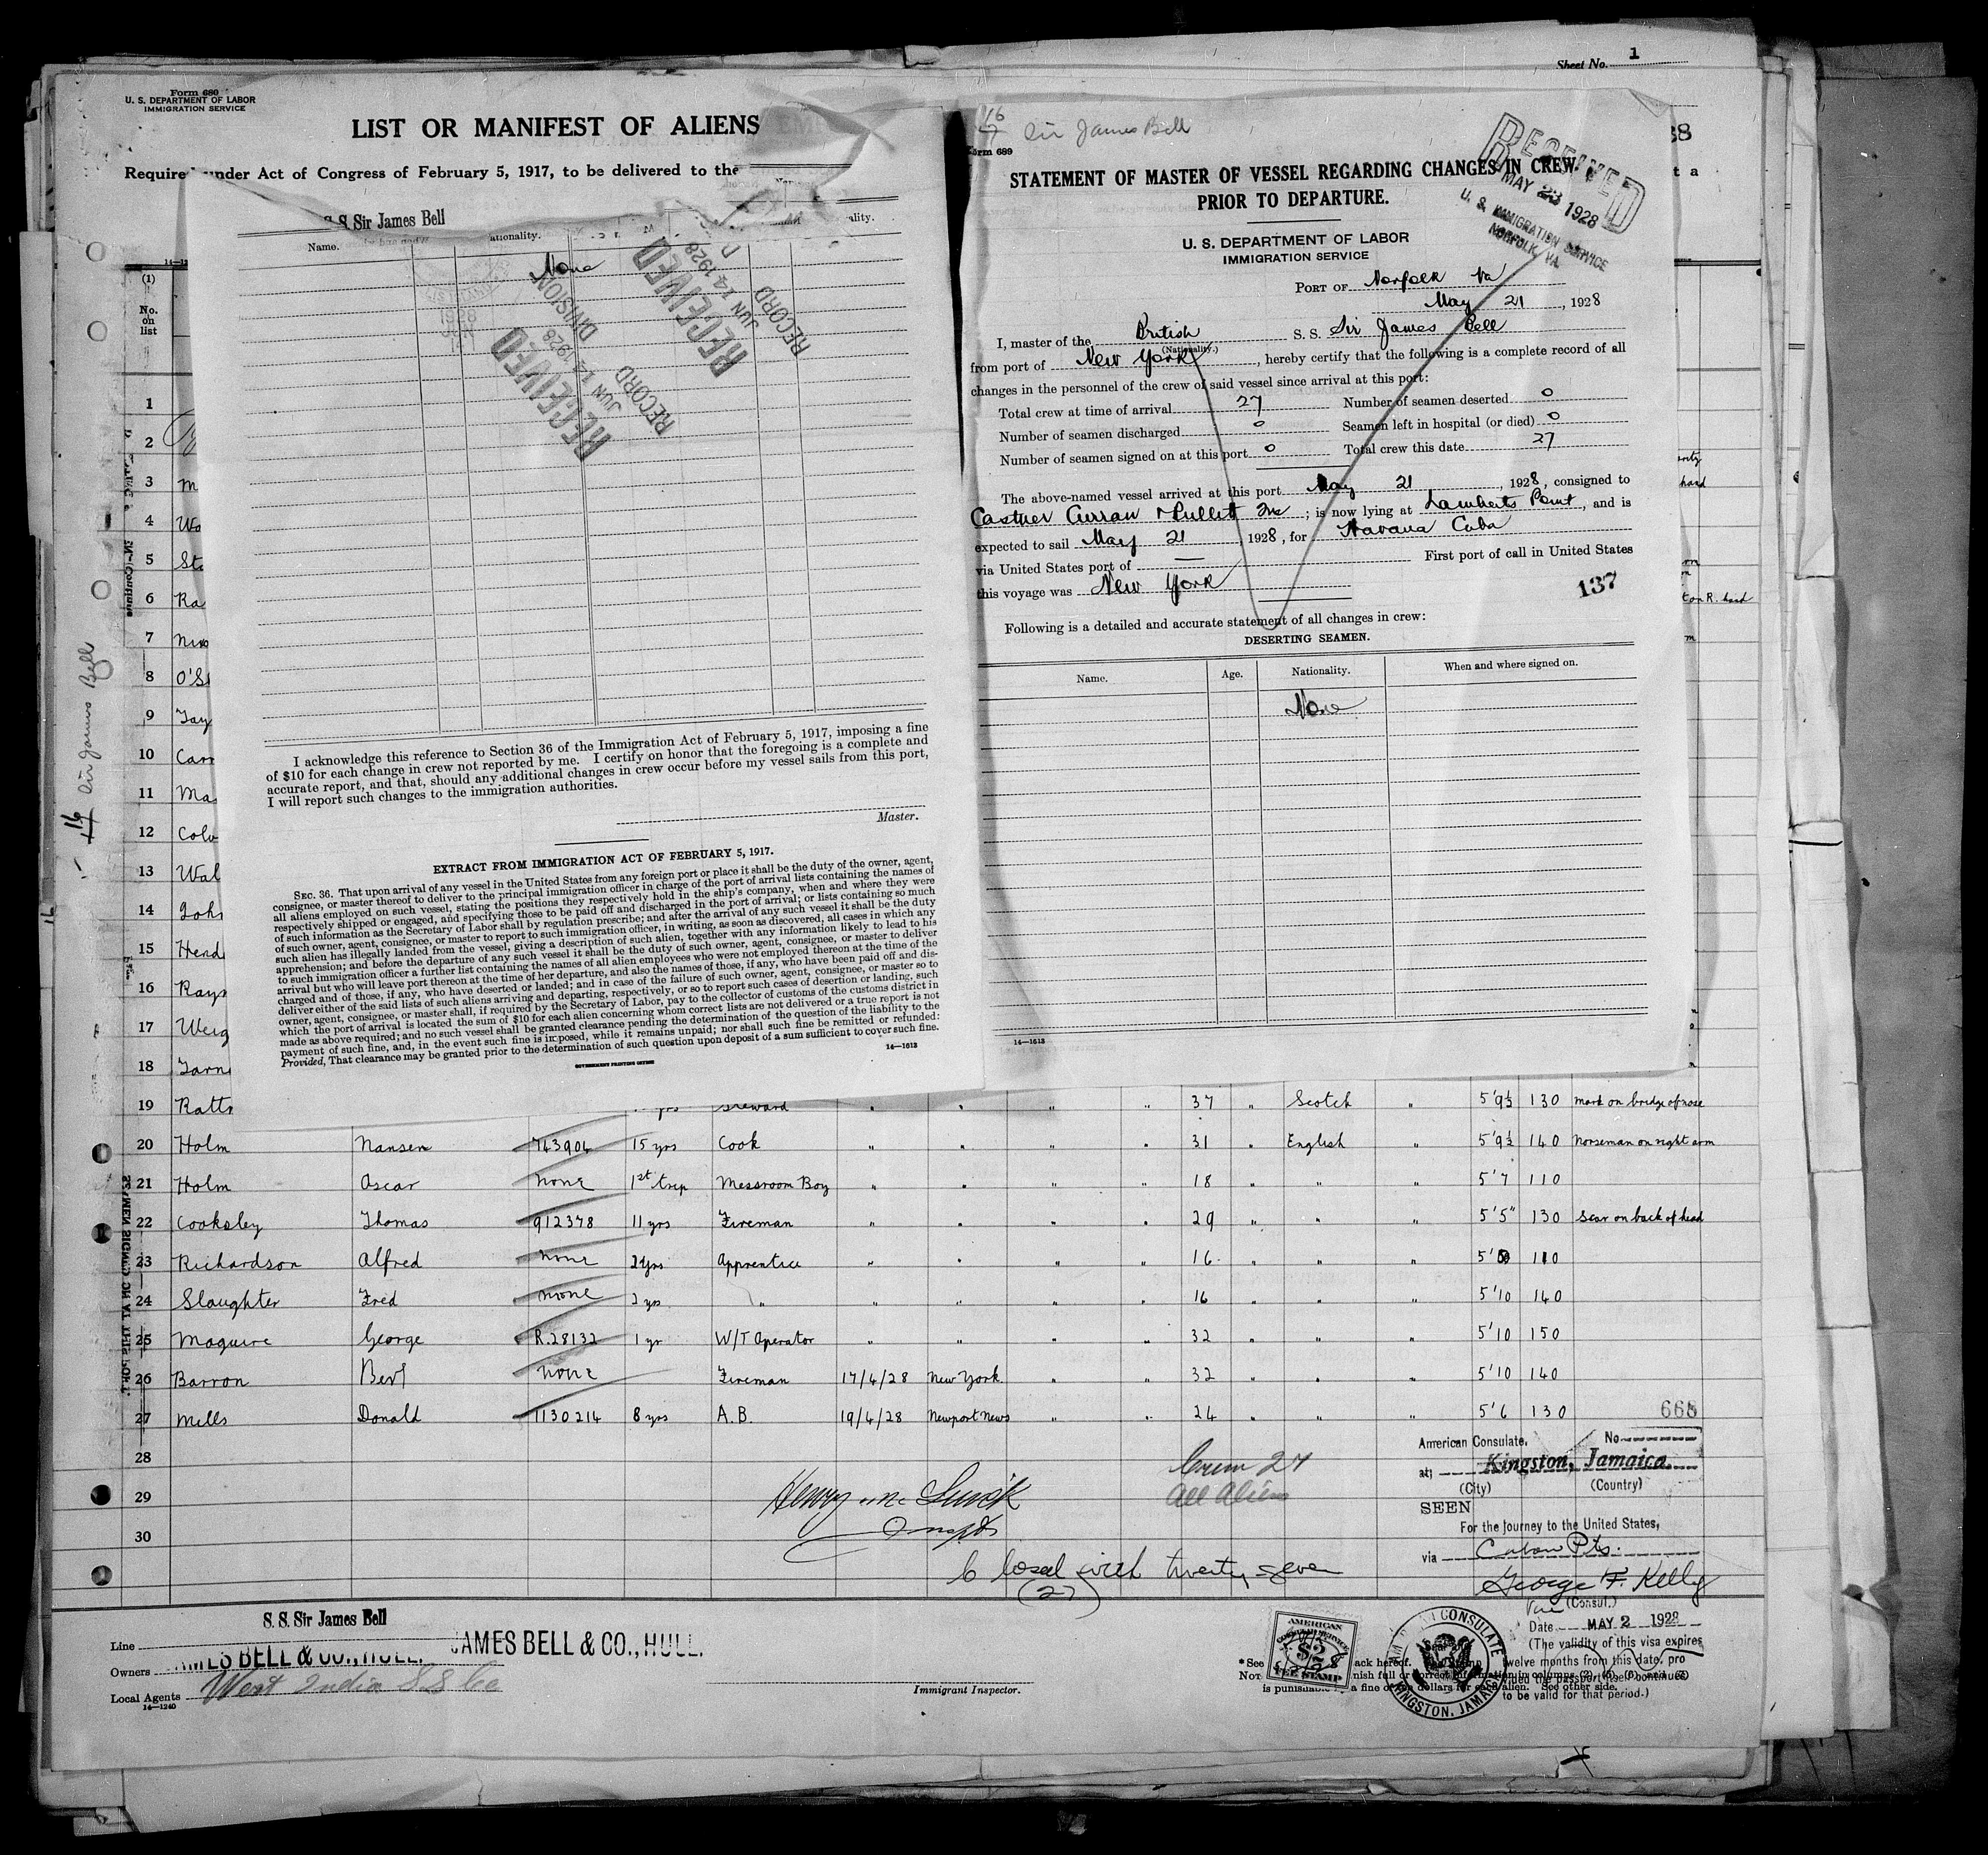 Sheet No. 1
Form 680
U. S. DEPARTMENT OF LABOR
IMMIGRATION SERVICE
LIST OR MANIFEST OF ALIENS
Required under Act of Congress of February 5, 1917, to be delivered to the
S. S. Sir James Bell
Name.
ationality.
ality.
None
RECEIVED
JUN 14 1928
RECORD
DIVISION
RECEIVED
JUN 14 1928
RECORD
I acknowledge this reference to Section 36 of the Immigration Act of February 5, 1917, imposing a fine
of $10 for each change in crew not reported by me. I certify on honor that the foregoing is a complete and
accurate report, and that, should any additional changes in crew occur before my vessel sails from this port,
I will report such changes to the immigration authorities.
Master.
EXTRACT FROM IMMIGRATION ACT OF FEBRUARY 5, 1917.
SEC. 36. That upon arrival of any vessel in the United States from any foreign port or place it shall be the duty of the owner, agent,
consignee, or master thereof to deliver to the principal immigration officer in charge of the port of arrival lists containing the names of
all aliens employed on such vessel, stating the positions they respectively hold in the ship's company, when and where they were
respectively shipped or engaged, and specifying those to be paid off and discharged in the port of arrival; or lists containing so much
of such information as the Secretary of Labor shall by regulation prescribe; and after the arrival of any such vessel it shall be the duty
of such owner, agent, consignee, or master to report to such immigration officer, in writing, as soon as discovered, all cases in which any
such alien has illegally landed from the vessel, giving a description of such alien, together with any information likely to lead to his
apprehension; and before the departure of any such vessel it shall be the duty of such owner, agent, consignee, or master to deliver
to such immigration officer a further list containing the names of all alien employees who were not employed thereon at the time of the
arrival but who will leave port thereon at the time of her departure, and also the names of those, if any, who have been paid off and dis-
charged and of those, if any, who have deserted or landed; and in case of the failure of such owner, agent, consignee, or master so to
deliver either of the said lists of such aliens arriving and departing, respectively, or so to report such cases of desertion or landing, such
owner, agent, consignee, or master shall, if required by the Secretary of Labor, pay to the collector of customs of the customs district in
which the port of arrival is located the sum of $10 for each alien concerning whom correct lists are not delivered or a true report is not
made as above required; and no such vessel shall be granted clearance pending the determination of the question of the liability to the
payment of such fine, and, in the event such fine is imposed, while it remains unpaid; nor shall such fine be remitted or refunded:
Provided, That clearance may be granted prior to the determination of such question upon deposit of a sum sufficient to cover such fine.
14—1613
GOVERNMENT PRINTING OFFICE
16
7
Sir James Bell
Form 689
STATEMENT OF MASTER OF VESSEL REGARDING CHANGES IN CREW
PRIOR TO DEPARTURE.
RECEIVED
MAY 23 1928
U. S. IMMIGRATION SERVICE
NORFOLK, VA.
U. S. DEPARTMENT OF LABOR
IMMIGRATION SERVICE
PORT OF Norfolk Va
May 21, 1928
I, master of the British S. S. Sir James Bell
(Nationality.)
from port of New York, hereby certify that the following is a complete record of all
changes in the personnel of the crew of said vessel since arrival at this port:
Total crew at time of arrival 27 Number of seamen deserted 0
Number of seamen discharged 0 Seamen left in hospital (or died) 0
Number of seamen signed on at this port 0 Total crew this date 27
The above-named vessel arrived at this port May 21, 1928, consigned to
Castner Curran & Bullitt Inc; is now lying at Lamberts Point, and is
expected to sail May 21 1928, for Havana Cuba
via United States port of — First port of call in United States
this voyage was New York
137
Following is a detailed and accurate statement of all changes in crew:
DESERTING SEAMEN.
Name. Age. Nationality. When and where signed on.
None
14—1613
16 Sir James Bell
(1)
No.
on
list
1
2
3 M
4 Wa
5 Sta
6 Ra
7 Nixo
8 O'S
9 Tay
10 Carr
11 Ma
12 Colv
13 Wal
14 Joh
15 Hend
16 Rays
17 Weig
18 Tarn
19 Rattr yrs Steward " " " " 37 " Scotch " 5'9½ 130 mark on bridge of nose
20 Holm Nansen 743904 15 yrs Cook " " " " 31 " English " 5'9½ 140 Norseman on right arm
21 Holm Oscar none 1st trip Messroom Boy " " " " 18 " " " 5'7 110
22 Cooksley Thomas 912378 11 yrs Fireman " " " " 29 " " " 5'5" 130 Scar on back of head
23 Richardson Alfred none 2 yrs Apprentice " " " " 16 " " " 110
24 Slaughter Fred none 2 yrs " " " " " 16 " " " 5'10 140
25 Maguire George R.28132 1 yr W/T Operator " " " " 32 " " " 5'10 150
26 Barron Bert none Fireman 17/4/28 New York " " 32 " " " 5'10 140
27 Mills Donald 1130214 8 yrs A.B. 19/4/28 Newport News " " 24 " " " 5'6 130
28
29
30
Crew 27
All Aliens
Closed with twenty seven
(27)
668
American Consulate, No
at Kingston, Jamaica.
(City) (Country)
SEEN
For the journey to the United States,
via Cuban Pts.
George F. Kelly
Vice (Consul.)
Date MAY 2 1928
(The validity of this visa expires
twelve months from this date, pro
vided the passport itself continues
to be valid for that period.)
S. S. Sir James Bell
Line
Owners JAMES BELL & CO., HULL. JAMES BELL & CO., HULL.
Local Agents West India S S Co
14—1240
Immigrant Inspector.
AMERICAN
CONSULAR SERVICE
$2
FEE STAMP
AMERICAN CONSULATE
KINGSTON, JAMAICA